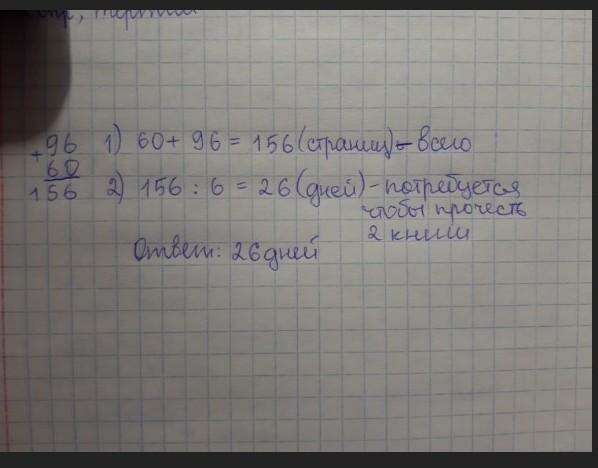 96
+
60
156
1) 60 + 96 = 156 (страниц) - всего
2) 156 : 6 = 26 (дней) - потребуется
чтобы прочесть
2 книги
Ответ: 26 дней